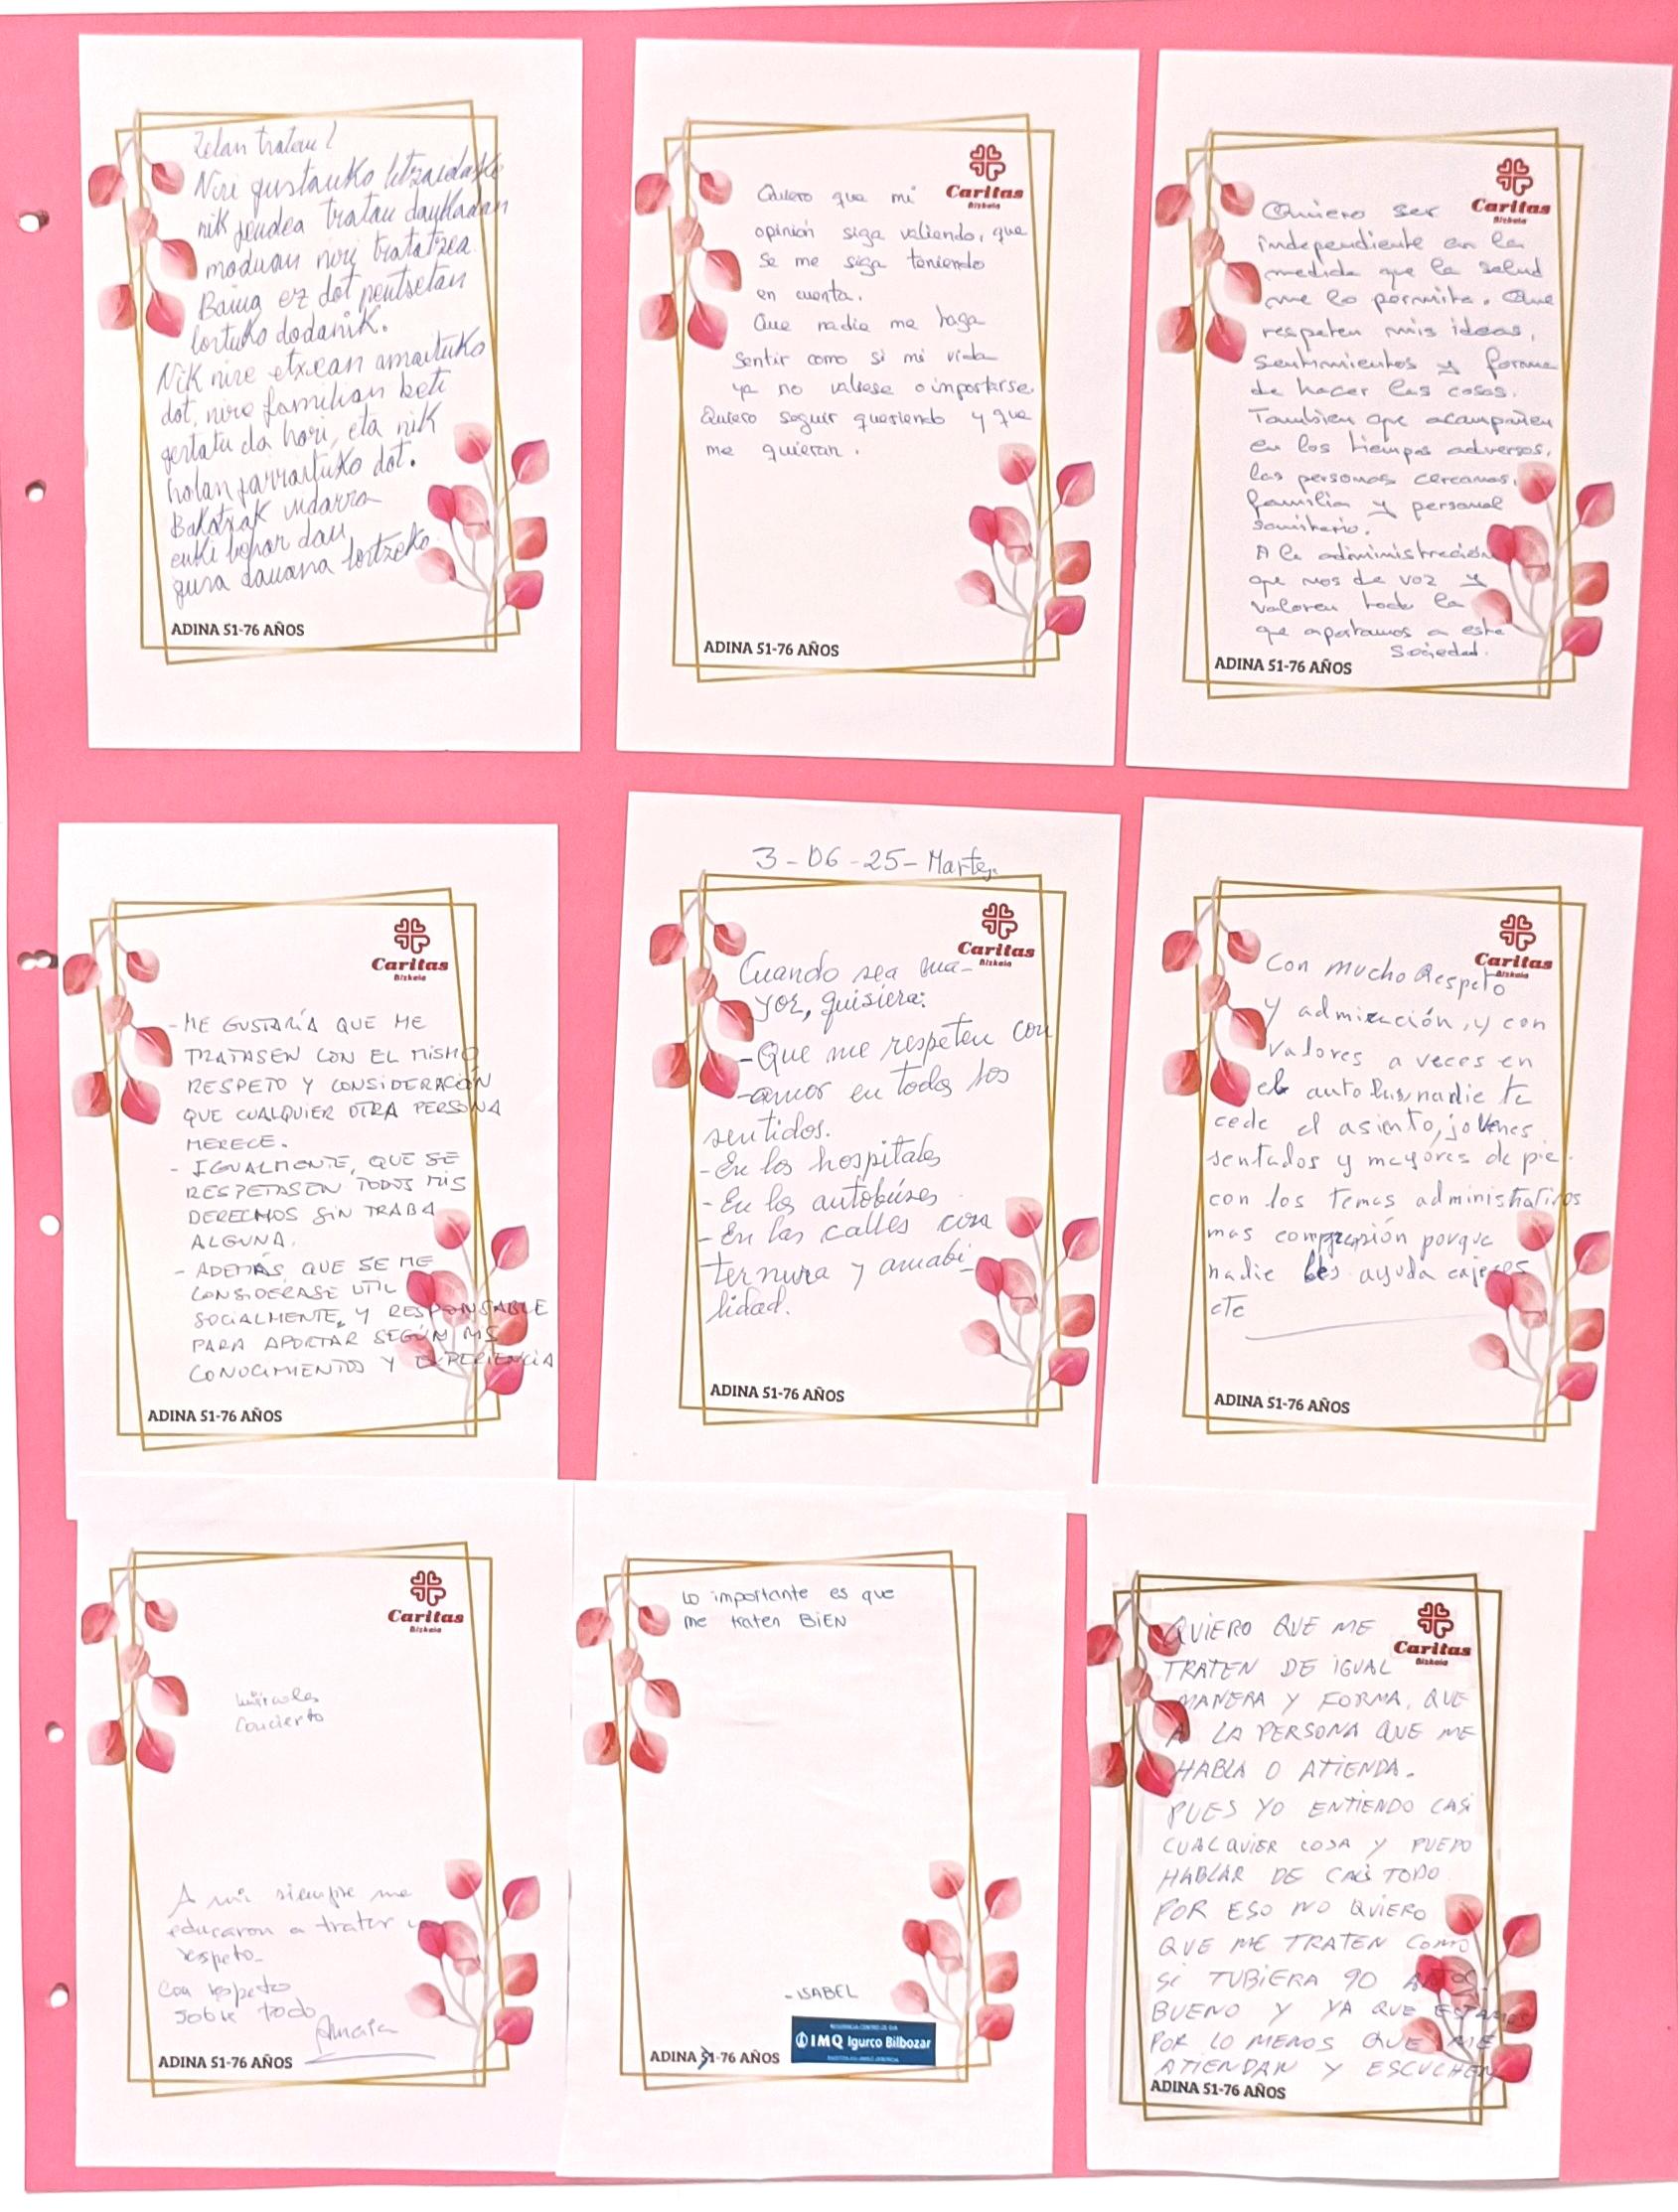 Zelan tratau?
Niri gustauko litzaidake
nik jendea tratau daukadan
moduan niri tratatzea.
Baina ez dot pentsetan
lortuko dodanik.
Nik nire etxean amaituko
dot, nire familian beti
gertatu da hori, eta nik
holan jarraituko dot.
Bakotxak indarra
euki behar dau
gura dauana lortzeko.
ADINA 51-76 AÑOS
Caritas
Bizkaia
Quiero que mi
opinión siga valiendo, que
se me siga teniendo
en cuenta.
Que nadie me haga
sentir como si mi vida
ya no valiese o importarse.
Quiero seguir queriendo y que
me quieran.
ADINA 51-76 AÑOS
Caritas
Bizkaia
Quiero ser
independiente en la
medida que la salud
me lo permita. Que
respeten mis ideas,
sentimientos y forma
de hacer las cosas.
Tambien que acompañen
en los tiempos adversos,
las personas cercanas,
familia y personal
sanitario.
A la administración
que nos de voz y
valoren todo lo
que aportamos a esta
sociedad.
ADINA 51-76 AÑOS
Caritas
Bizkaia
- ME GUSTARÍA QUE ME
TRATASEN CON EL MISMO
RESPETO Y CONSIDERACIÓN
QUE CUALQUIER OTRA PERSONA
MERECE.
- IGUALMENTE, QUE SE
RESPETASEN TODOS MIS
DERECHOS SIN TRABA
ALGUNA.
- ADEMÁS QUE SE ME
CONSIDERASE UTIL
SOCIALMENTE, Y RESPONSABLE
PARA APORTAR SEGÚN MIS
CONOCIMIENTOS Y EXPERIENCIA
ADINA 51-76 AÑOS
3-06-25- Martes
Caritas
Bizkaia
Cuando sea ma-
yor, quisiera:
- Que me respeten con
- amor en todos los
sentidos.
- En los hospitales
- En los autobúses
- En las calles con
ternura y amabi-
lidad.
ADINA 51-76 AÑOS
Caritas
Bizkaia
Con mucho Respeto
y admiración, y con
valores a veces en
el autobus nadie te
cede el asiento, jovenes
sentados y mayores de pie.
con los temas administrativos
mas comprensión porque
nadie les ayuda cajeros
etc
ADINA 51-76 AÑOS
Caritas
Bizkaia
Miércoles
Concierto
A mi siempre me
educaron a tratar
respeto-
Con respeto
sobre todo
Amaia
ADINA 51-76 AÑOS
Lo importante es que
me traten BIEN
- ISABEL
IMQ Igurco Bilbozar
ADINA 51-76 AÑOS
Caritas
Bizkaia
QUIERO QUE ME
TRATEN DE IGUAL
MANERA Y FORMA, QUE
A LA PERSONA QUE ME
HABLA O ATIENDA.
PUES YO ENTIENDO CASI
CUALQUIER COSA Y PUEDO
HABLAR DE CASI TODO
POR ESO NO QUIERO
QUE ME TRATEN COMO
SI TUBIERA 90 AÑOS.
BUENO Y YA QUE ESTAMOS
POR LO MENOS QUE ME
ATIENDAN Y ESCUCHEN
ADINA 51-76 AÑOS